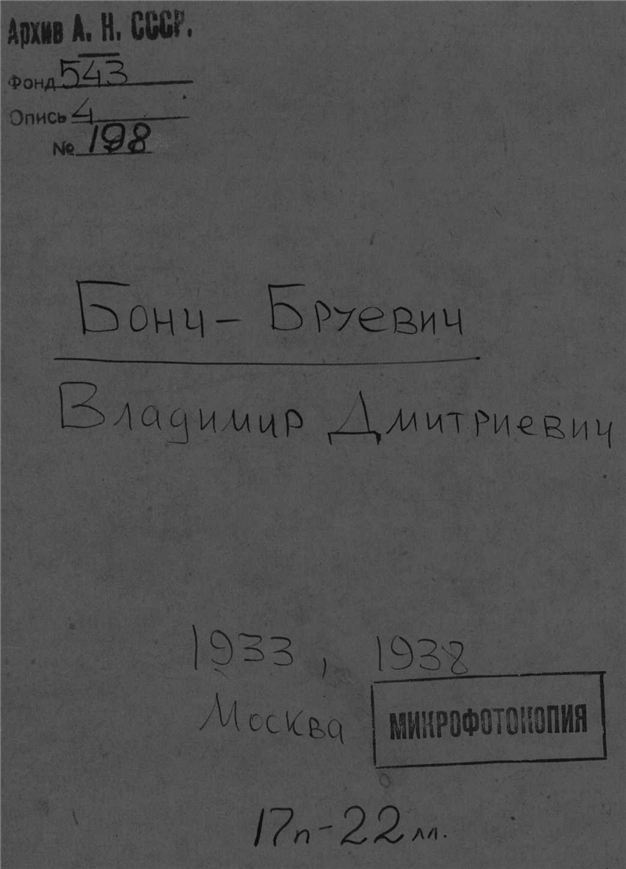 Архив А. Н. СССР.
Фонд 543
Опись 4
№ 198
Бонч-Бруевич
Владимир Дмитриевич
1933, 1938
Москва
МИКРОФОТОКОПИЯ
17п-22лл.